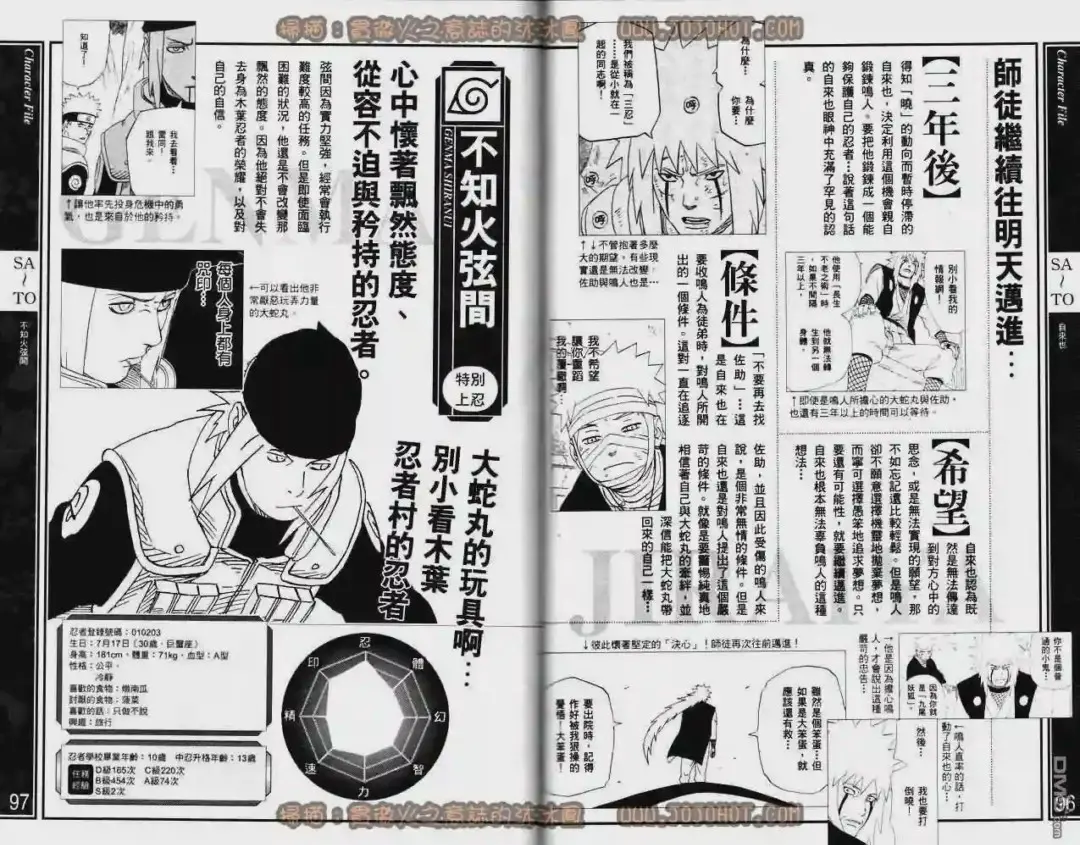 掃描：冒險火之意誌的沐沐圓
WWW.JOJOHOT.COM
Character File
SA
～
TO
自來也
96
師徒繼續往明天邁進…
【三年後】
得知「曉」的動向而暫時停滯的
自來也，決定利用這個機會親自
鍛鍊鳴人。要把他鍛鍊成一個能
夠保護自己的忍者…說著這句話
的自來也眼神中充滿了罕見的認
真。
別小看我的
情報網！
他使用「長生
不老之術」時
，如果不間隔
三年以上，
他就無法轉
生到另一個
身體。
↑即使是鳴人所擔心的大蛇丸與佐助，
也還有三年以上的時間可以等待。
為什麼…
為什麼
你要…
我們被稱為「三忍」
……是從小就在一
起的同志啊！
↑↓不管抱著多麼
大的期望，有些現
實還是無法改變。
佐助與鳴人也是…
【條件】
「不要再去找
佐助」…這
是自來也在
要收鳴人為徒弟時，對鳴人所開
出的一個條件。這對一直在追逐
佐助，並且因此受傷的鳴人來
說，是個非常無情的條件。但是
自來也還是對鳴人提出了這個嚴
苛的條件。就像是要警惕純真地
相信著自己與大蛇丸的牽絆，並
深信能把大蛇丸帶
回來的自己一樣…
我不希望
讓你重蹈
我的覆轍啊…
【希望】
自來也認為既
然是無法傳達
到對方心中的
思念，或是無法實現的願望，那
不如忘記還比較輕鬆。但是鳴人
卻不願意選擇機靈地拋棄夢想，
而寧可選擇愚笨地追求夢想。只
要還有可能性，就要繼續邁進。
自來也根本無法辜負鳴人的這種
想法…
JIRAIYA
你不是個普
通的小鬼…
因為你就
是「九尾
妖狐」…
→他是因為擔心鳴
人，才會說出這種
嚴苛的忠告…
←鳴人直率的話，打
動了自來也的心…
然後…
我也要打
倒曉！
↓彼此懷著堅定的「決心」！師徒再次往前邁進！
雖然是個笨蛋…但
如果是大笨蛋，就
應該還有救…
要出院時，記得
作好被我狠操的
覺悟！大笨蛋！
Character File
SA
～
TO
不知火弦間
97
不知火弦間
GENMA SHIRANUI
特別
上忍
心中懷著飄然態度、
從容不迫與矜持的忍者。
弦間因為實力堅強，經常會執行
難度較高的任務。但是即使面臨
困難的狀況，他還是不會改變那
飄然的態度。因為他絕對不會失
去身為木葉忍者的榮耀，以及對
自己的自信。
GENMA
知道了…
我去看看…
雷同！
跟我來。
↑讓他率先投身危機中的勇
氣，也是來自於他的矜持。
每個人身上都有
咒印…
←可以看出他非
常厭惡玩弄力量
的大蛇丸。
大蛇丸的玩具啊…
別小看木葉
忍者村的忍者
忍者登錄號碼：010203
生日：7月17日（30歲，巨蟹座）
身高：181cm，體重：71kg，血型：A型
性格：公平、
冷靜
喜歡的食物：燉南瓜
討厭的食物：菠菜
喜歡的話：只做不說
興趣：旅行
忍者學校畢業年齡：10歲 中忍升格年齡：13歲
任務
經驗
D級165次 C級220次
B級454次 A級74次
S級2次
忍
體
幻
智
力
速
精
印
掃描：冒險火之意誌的沐沐圓
WWW.JOJOHOT.COM